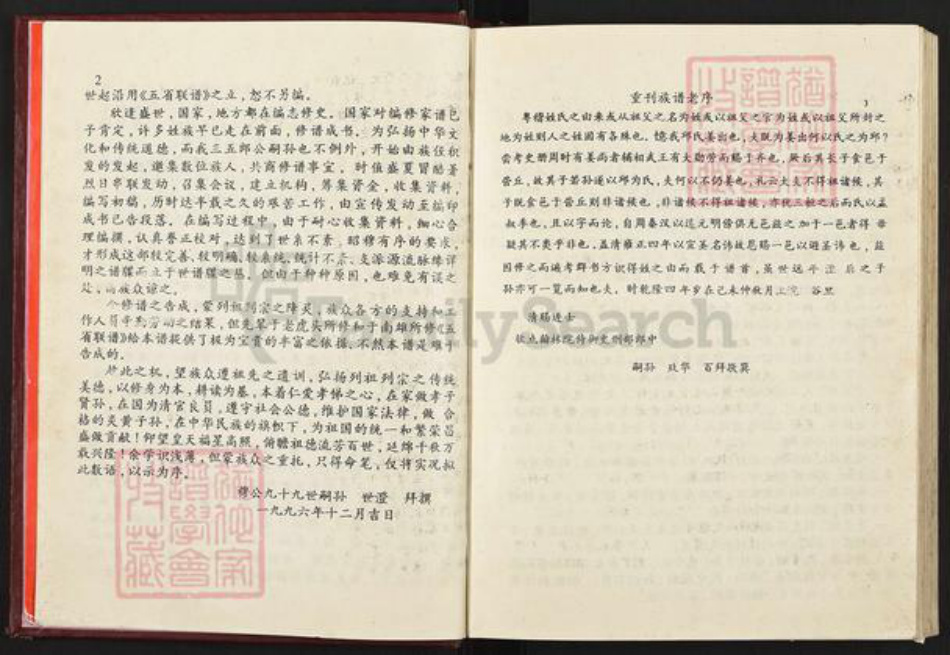 2
世起沿用《五省联谱》之立,恕不另编。
欣逢盛世,国家,地方都在编志修史。国家对编修家谱已
予肯定,许多姓族早已走在前面,修谱成书。为弘扬中华文
化和传统道德,而我三五郎公嗣孙也不例外,开始由族侄积
发的发起,邀集数位族人,共商修谱事宜。时值盛夏冒酷暑
烈日串联发动,召集会议,建立机构,筹集资金,收集资料,
编写初稿,历时达半载之久的艰苦工作,由宣传发动至编印
成书已告段落。在编写过程中,由于耐心收集资料,细心合
理编撰,认真誊正校对,达到了世系不紊,昭穆有序的要求,
才形成这部较完善,较明确,较系统,统计不杂,支派源流脉络详
明之谱牒而立于世谱牒之林。但由于种种原因,也难免有误之
处,而族众谅之。
今修谱之告成,蒙列祖列宗之降灵,族众各方的支持和工
作人员辛勤劳动之结果,但先辈于老虎头所修和于南雄所修《五
省联谱》给本谱提供了极为宝贵的丰富之依据,不然本谱是难于
告成的。
趁此之机,望族众遵祖先之遗训,弘扬列祖列宗之传统
美德,以修身为本,耕读为基,本着仁爱孝悌之心,在家做孝子
贤孙,在国为清官良员,遵守社会公德,维护国家法律,做合
格的炎黄子孙,在中华民族的旗帜下,为祖国的统一和繁荣昌
盛做贡献!仰望皇天福星高照,俯瞻祖德流芳百世,延绵千秋万
载兴隆!余学识浅薄,但蒙族众之重托,只得命笔,仅将实况拟
此数语,以示为序。
穆公九十九世嗣孙 世澄 拜撰
一九九六年十二月吉日
3
重刊族谱老序
粤稽姓氏之由来或从祖父之名为姓或以祖父之官为姓或以祖父所封之
地为姓别人之姓固有各殊也。憶我邱氏姜出也,夫既为姜出何以氏之为邱?
尝考史册周时有姜尚者辅相武王有大勋劳而赐于齐也,厥后其长子食邑于
营丘,故其子若孙遂以邱为氏,夫何以不仍姜也,礼云大夫不得祖诸候,其
子既食邑于营丘则非诸候也,非诸候不得祖诸候,亦犹三桓之后而氏以孟
叔季也,且以字而论,自周秦汉以迄元明偕俱无邑兹之加于一邑者得 毋
疑其不类乎非也,盖清雍正四年以宣圣名讳故恩赐一邑以避圣讳也,兹
因修之而遍考群书方识得姓之由而载于谱首,虽世远年湮后之子
孙亦可一览而知也夫,时乾隆四年岁在己未仲秋月上浣 谷旦
清赐进士
钦点翰林院侍御史刑部郎中
嗣孙 玖华 百拜敬冀
猶他家譜學會收藏
FamilySearch